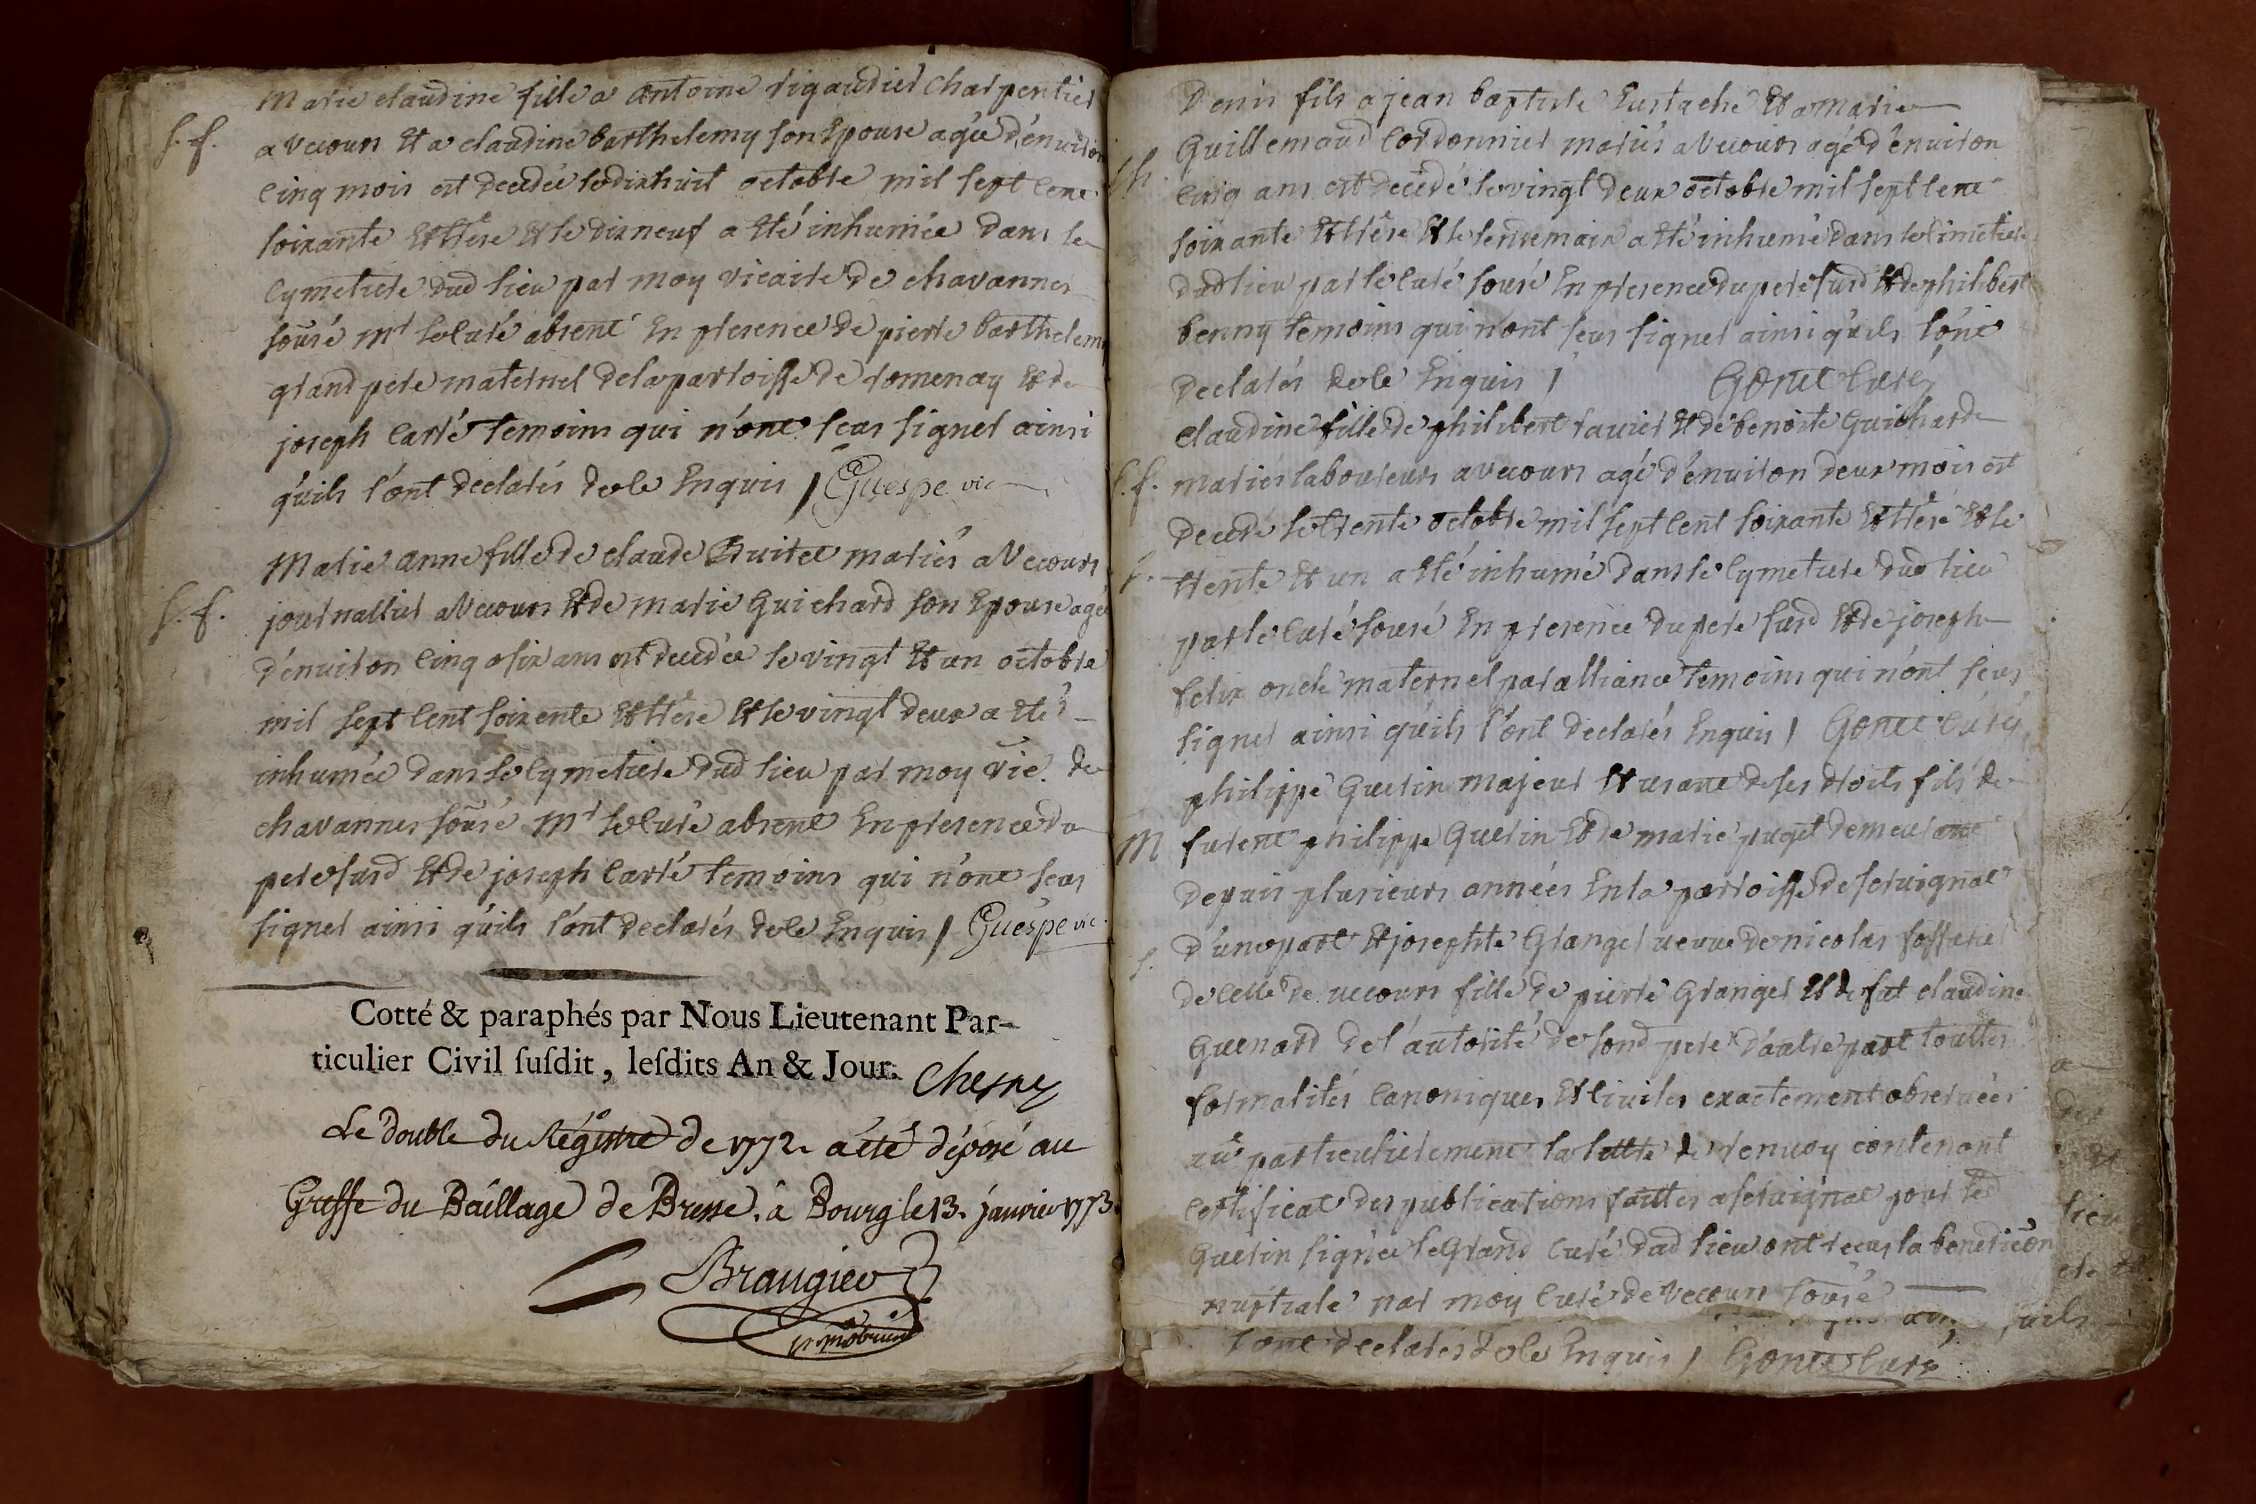 Marie claudine fille a antoine rigaudier charpentier
S. f.
a vecours Et a claudine barthelemy son Epouse agée d'environ
cinq mois est decedée le dixhuit octobre mil sept cent
soixante Et tese Et le dix neuf a Eté inhumée dans le
cymetiere dud lieu par moy vicaire de chavannes
sousé mr le curé absent En presence de pierre barthelemy
grand pere maternel de la parroisse de romenay Et de
joseph carré temoins qui n'ont sceus signer ainsi
qu'ils l'ont declarés de ce Enquis / Guespe vic
Marie anne fille de claude Buiret mariés a Vecours
S. f.
journallier a Vecours Et de marie Guichard son Epouse agée
d'environ cinq a six ans est decedée le vingt Et un octobre
mil sept cent soixente Et tese Et le vingt deux a Eté
inhumée dans le cymetiere dud lieu par moy vic. de
chavannes sousé mr le curé absent En presence du
pere susd Et de joseph carré temoins qui n'ont sceus
signer ainsi qu'ils l'ont declarés de ce Enquis / Guespe vic.
Cotté & paraphés par Nous Lieutenant Par-
ticulier Civil susdit, lesdits An & Jour.
Le double du Régistre de 1772 a été déposé au
Greffe du Baillage de Bresse, à Bourg le 13. janvier 1773.
Denis fils a jean baptiste Eustache Et a marie
Guillemaud cordonnier mariés a Vecours agé d'environ
cinq ans est decedé le vingt deux octobre mil sept cent
soixante Et tese Et le lendemain a Eté inhumé dans le cimetiere
dud lieu par le curé sousé En presence du pere susd Et de philibert
benny temoins qui n'ont sceus signer ainsi qu'ils l'ont
declarés de ce Enquis / Gonet curé
claudine fille de philibert favier Et de benoite Guichard
S. f.
mariés laboureurs a vecours agé d'environ deux mois est
decedé le trente octobre mil sept cent soixante Et tese Et le
trente Et un a Eté inhumé dans le cymetiere dud lieu
par le curé sousé En presence du pere susd Et de joseph
felix oncle maternel par alliance temoins qui n'ont sceus
signer ainsi qu'ils l'ont declarés Enquis / Gonet curé
philippe Guerin majeur Et usant de ses droits fils de
M
furent philippe Guerin Et de marie puget demeurant
depuis plusieurs années En la parroisse de servignat
d'une part Et josephte Granger veuve de nicolas
de celle de vecours fille de pierre Granger Et de fut claudine
Guenard de l'autorité de sond pere d'autre part toutes
formalités canoniques Et civiles exactement observées
vû particulierement la lettre de renvoy contenant
certificat des publications faittes a servignat pour led
Guerin signée le Grand curé dud lieu ont recus la benediction
nuptiale par moy curé de vecours sousé
l'ont declarés de ce Enquis / Gonet curé